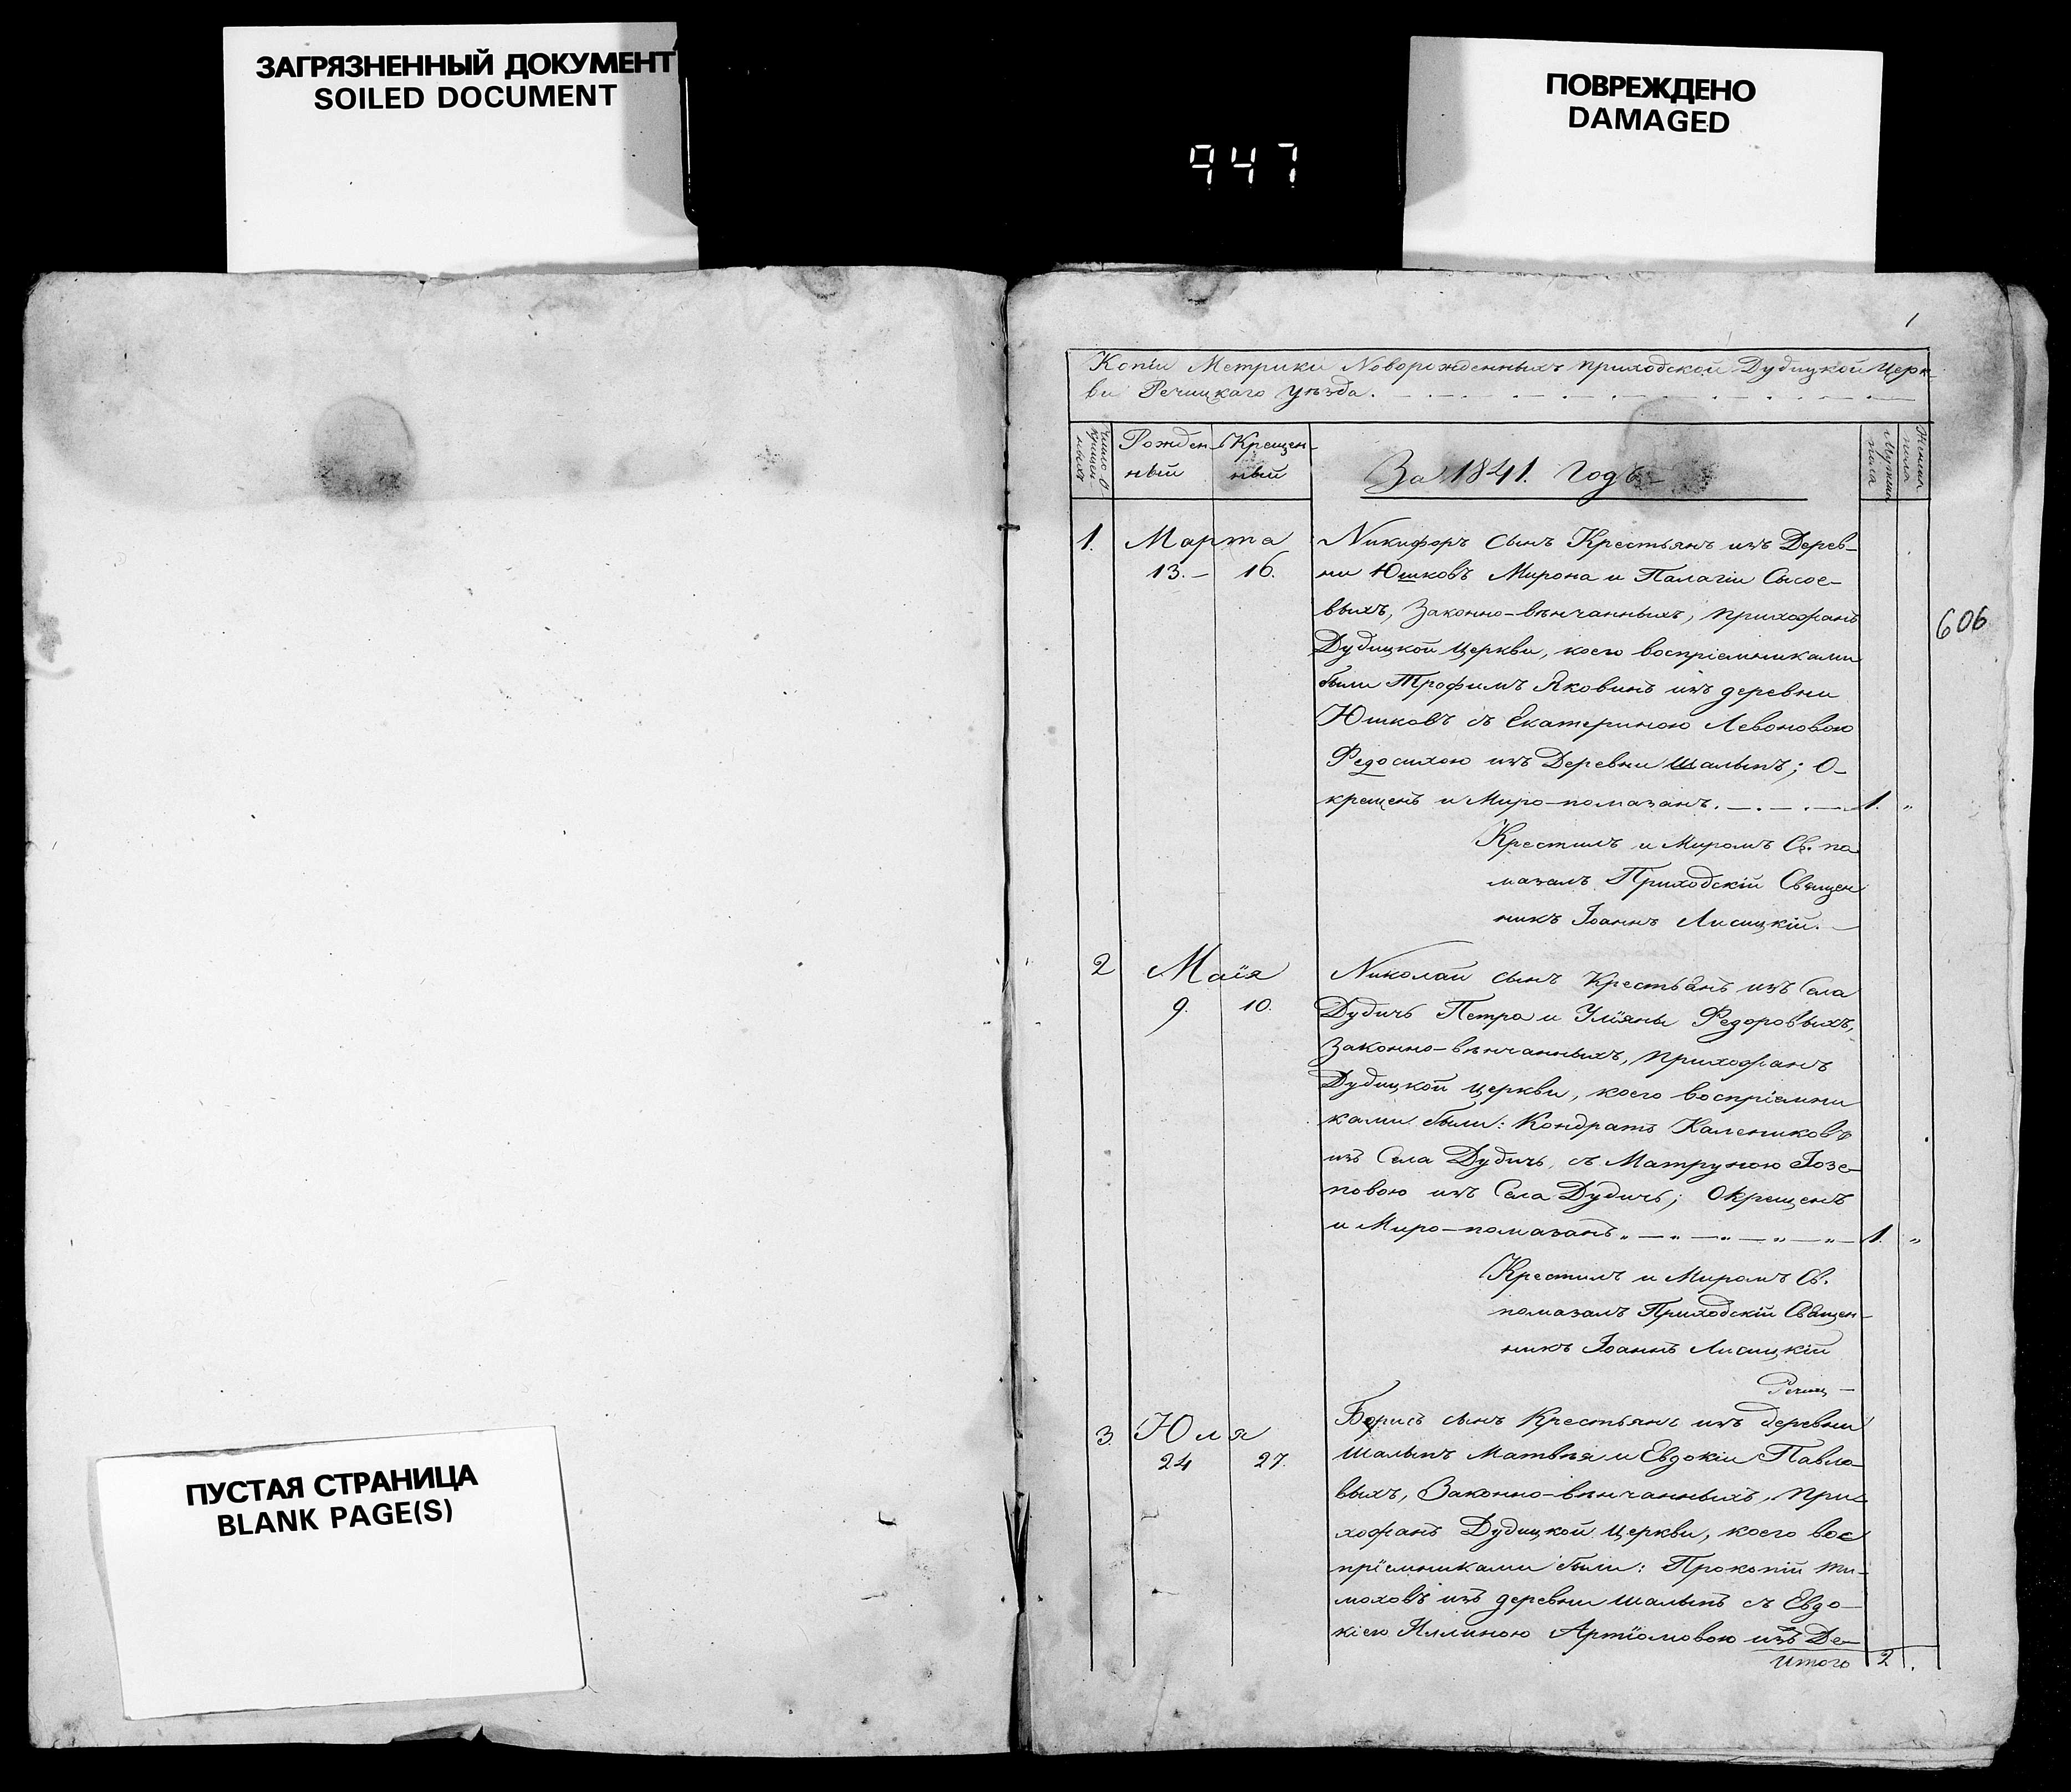 ЗАГРЯЗНЕННЫЙ ДОКУМЕНТ
SOILED DOCUMENT
ПОВРЕЖДЕНО
DAMAGED
947
ПУСТАЯ СТРАНИЦА
BLANK PAGE(S)
1
Копіи Метрики Новорожденныхъ приходской Дудицкой Церк-
ви Речицкаго уѣзда.
Рожден- Крещен-
ный ный
За 1841. Годъ
Мужеска пола
Женска пола
1. Марта Никифоръ сынъ Крестьянъ изъ Дерев-
13. 16. ни Юшковъ Мирона и Палагіи Сысое-
выхъ, Законно-вѣнчанныхъ, прихожанъ
606
Дудицкой Церкви, коего воспріемниками
были Трофимъ Яковинъ изъ деревни
Юшковъ съ Екатериною Левоновою
Федосихою изъ Деревни Шалыпъ; О-
крещенъ и Миро-помазанъ. 1. „
Крестилъ и Миромъ Св. по
мазалъ Приходскій Священ
никъ Іоаннъ Лисицкій.
2 Маія Николай сынъ Крестьянъ изъ Села
9. 10. Дудичъ Петра и Уліяны Федоровыхъ,
Законно-вѣнчанныхъ, прихожанъ
Дудицкой Церкви, коего воспріемни
ками были: Кондратъ Калениковъ
изъ Села Дудичъ, съ Матруною Іозе-
повою изъ Села Дудичъ; Окрещенъ
и Миро-помазанъ „ 1. „
Крестилъ и Миромъ Св.
помазалъ Приходскій Священ-
никъ Іоаннъ Лисицкій
3. Юля Борисъ сынъ Крестьянъ изъ деревни
24 27. Шалыпъ Матвѣя и Евдокіи Павло-
выхъ, Законно-вѣнчанныхъ, при-
хожанъ Дудицкой Церкви, коего вос
пріемниками были: Прокопій Ти-
моховъ изъ деревни Шалыпъ съ Евдо-
кіею Артіомовою изъ Де-
Итого 2